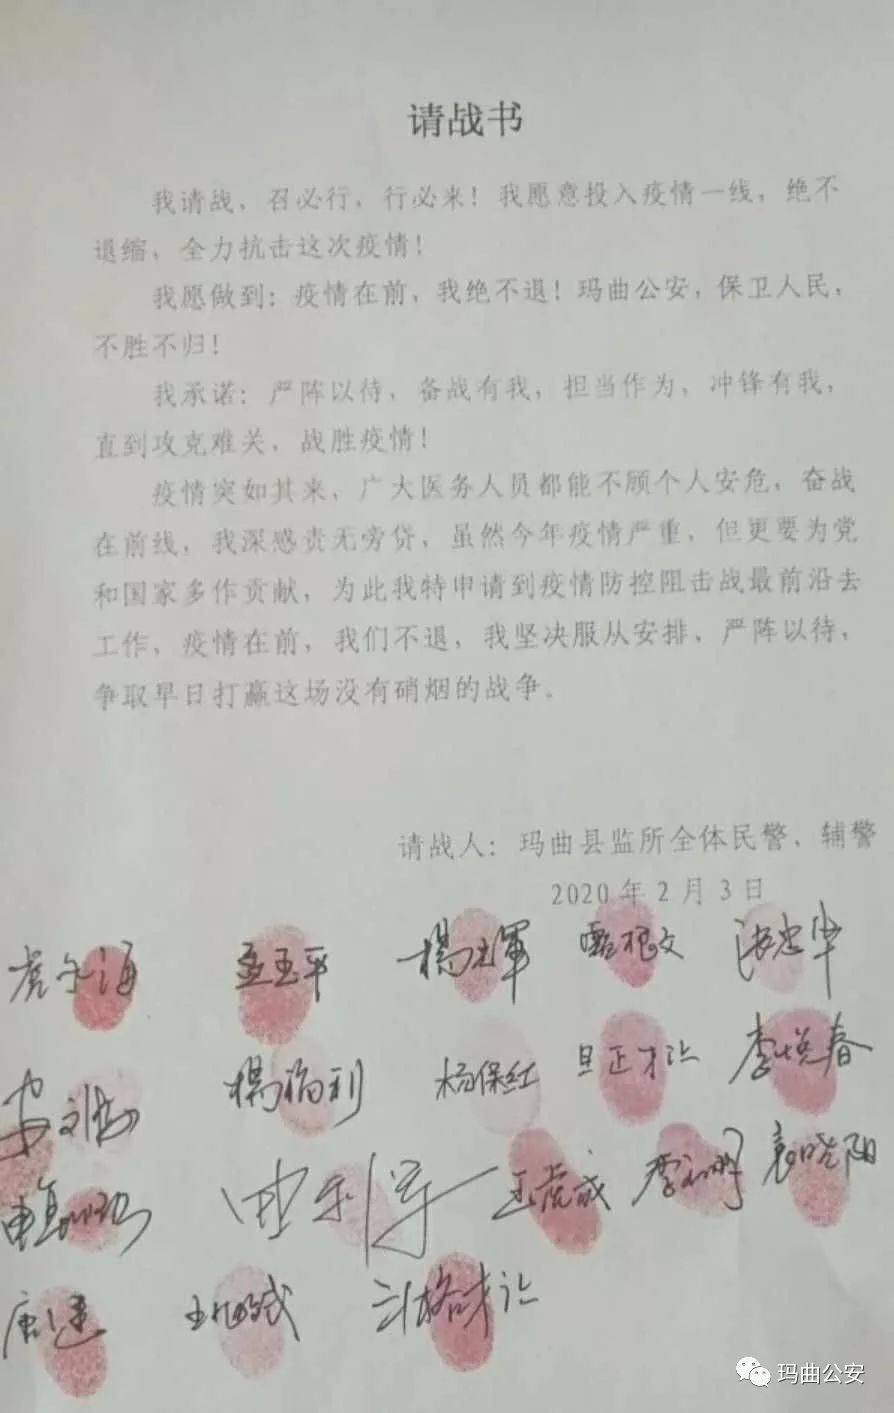 请战书
我请战、召必行，行必来！我愿意投入疫情一线，绝不
退缩、全力抗击这次疫情！
我愿做到：疫情在前，我绝不退！玛曲公安，保卫人民，
不胜不归！
我承诺：严阵以待，备战有我，担当作为、冲锋有我，
直到攻克难关、战胜疫情！
疫情突如其来，广大医务人员都能不顾个人安危，奋战
在前线，我深感责无旁贷、虽然今年疫情严重，但更要为党
和国家多作贡献，为此我特申请到疫情防控阻击战最前沿去
工作，疫情在前，我们不退，我坚决服从安排、严阵以待，
争取早日打赢这场没有硝烟的战争。
请战人：玛曲县监所全体民警、辅警
2020年2月3日
孟玉平
杨福利 杨保红 旦正才让 李悦春
王虎成 袁晓阳
玛曲公安